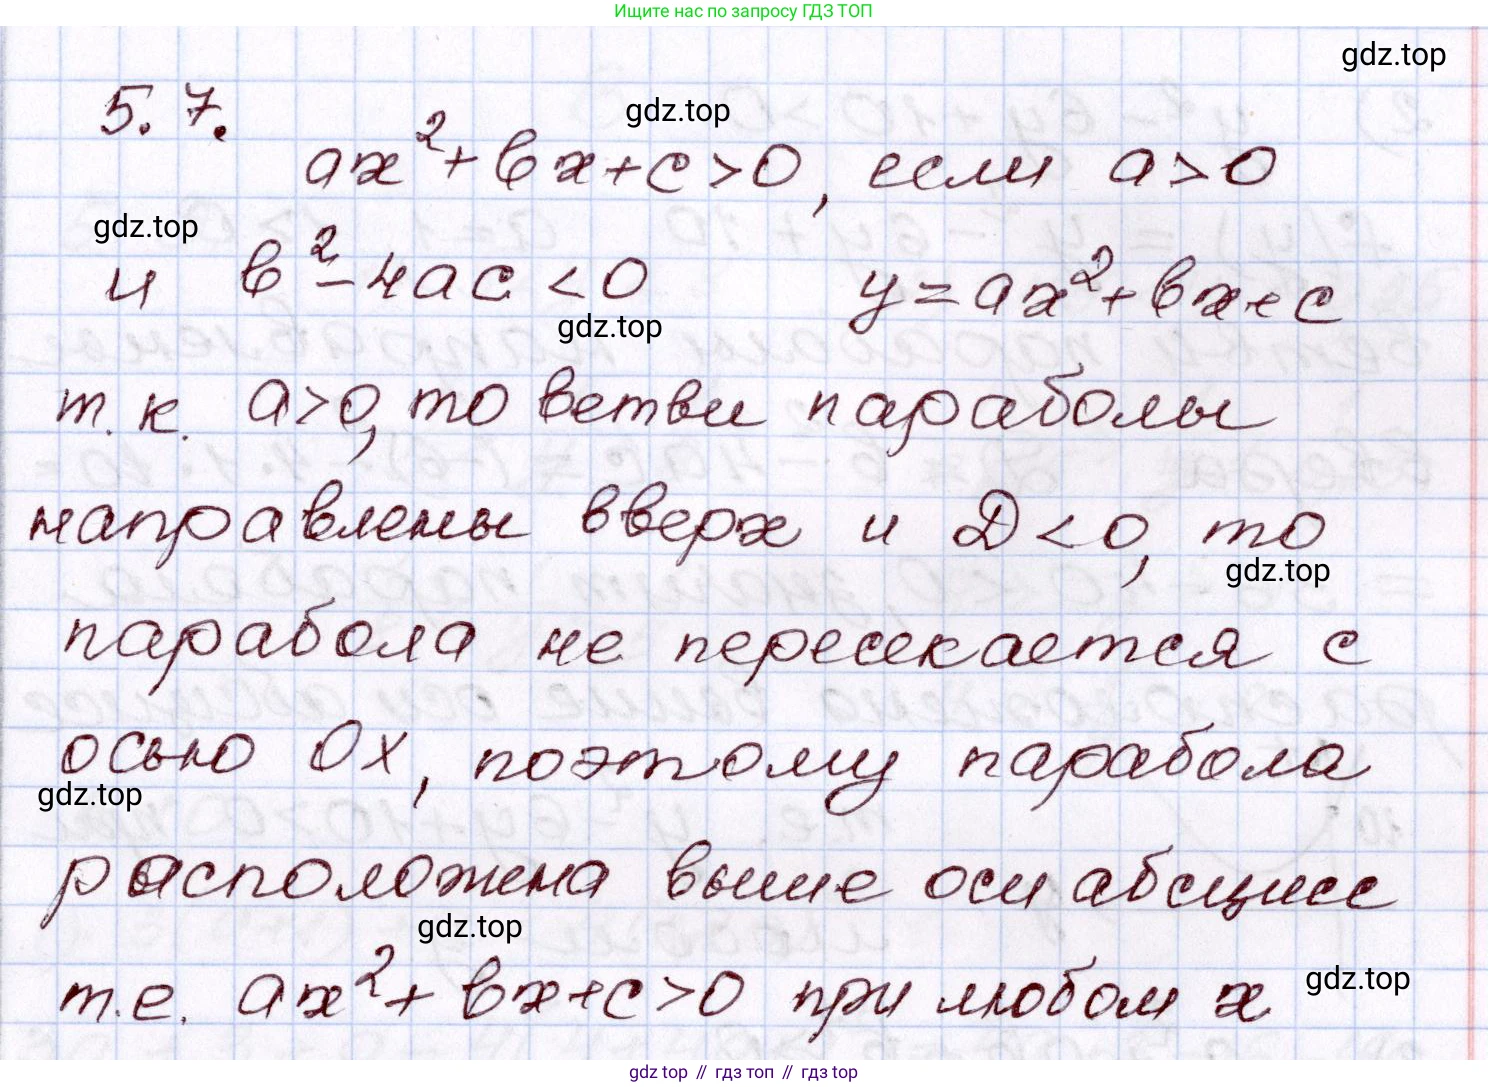 Ищите нас по запросу ГДЗ ТОП
gdz.top
5.7.
gdz.top
ax²+bx+c>0, если a>0
gdz.top
и b²-4ac<0 y=ax²+bx+c
gdz.top
т.к. a>0, то ветви параболы
направлены вверх и D<0, то
gdz.top
парабола не пересекается с
осью Ox, поэтому парабола
gdz.top
расположена выше оси абсцисс
gdz.top
т.е. ax²+bx+c>0 при любом x
gdz.top
gdz top // гдз топ // гдз top